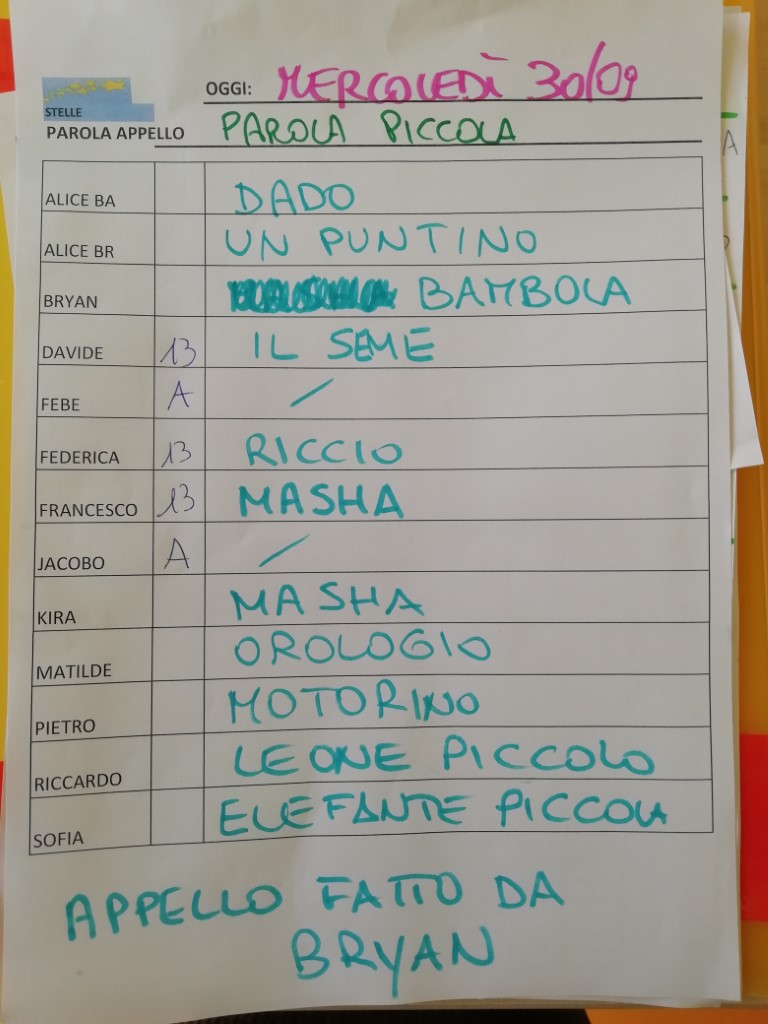 OGGI: MERCOLEDÌ 30/09
STELLE
PAROLA APPELLO PAROLA PICCOLA
ALICE BA DADO
ALICE BR UN PUNTINO
BRYAN BAMBOLA
DAVIDE 13 IL SEME
FEBE A /
FEDERICA 13 RICCIO
FRANCESCO 13 MASHA
JACOBO A /
KIRA MASHA
MATILDE OROLOGIO
PIETRO MOTORINO
RICCARDO LEONE PICCOLO
SOFIA ELEFANTE PICCOLA
APPELLO FATTO DA
BRYAN